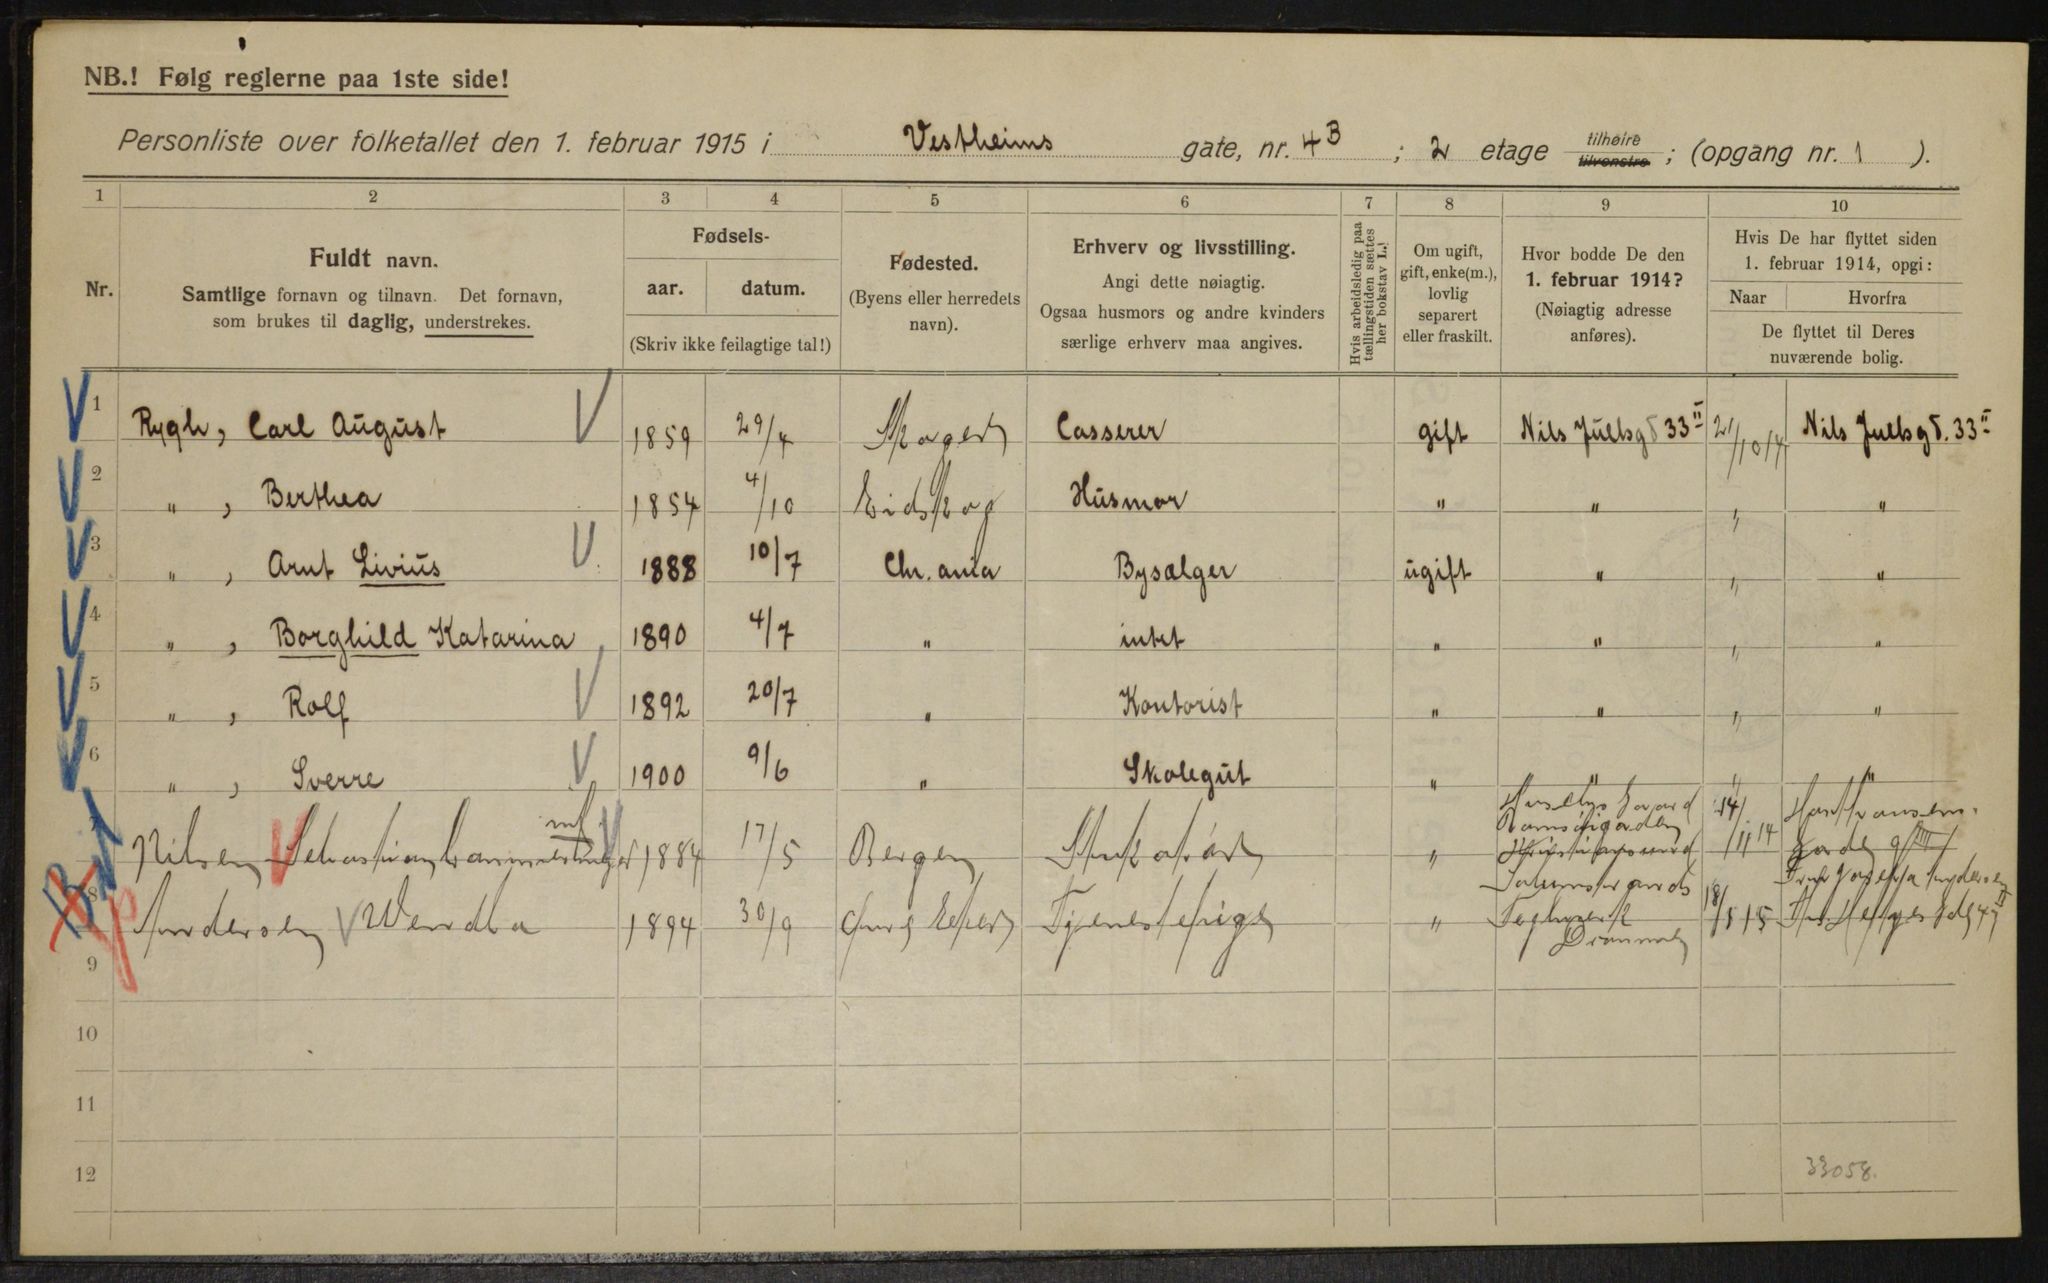 NB.! Følg reglerne paa 1ste side!
Personliste over folketallet den 1. februar 1915 i Vestheims gate, nr. 4B ; 2 etage tilhøire tilvenstre ; (opgang nr. 1 ).
1 2 3 4 5 6 7 8 9 10
Nr.
Fuldt navn.
Samtlige fornavn og tilnavn. Det fornavn,
som brukes til daglig, understrekes.
Fødsels-
aar. datum.
(Skriv ikke feilagtige tal!)
Fødested.
(Byens eller herredets
navn).
Erhverv og livsstilling.
Angi dette nøiagtig.
Ogsaa husmors og andre kvinders
særlige erhverv maa angives.
Hvis arbeidsledig paa
tællingstiden sættes
her bokstav L.!
Om ugift,
gift, enke(m.),
lovlig
separert
eller fraskilt.
Hvor bodde De den
1. februar 1914?
(Nøiagtig adresse
anføres).
Hvis De har flyttet siden
1. februar 1914, opgi:
Naar Hvorfra
De flyttet til Deres
nuværende bolig.
1 Rygh, Carl August 1859 29/4 Skoger Casserer gift Nils Juelsgd 33 II 21/10 14 Nils Juelsgd. 33 II
2 " , Berthea 1854 4/10 Eidskog Husmor " " " "
3 " , Arnt Livius 1888 10/7 Chr.ania Bysælger ugift " " "
4 " , Borghild Katarina 1890 4/7 " intet " " " "
5 " , Rolf 1892 20/7 " Kontorist " " " "
6 " , Sverre 1900 9/6 " Skolegut " " " "
Nilsen, Sebastian 1884 17/5 Bergen " 14/11 14
8 Andersen Wendla 1894 30/9 Tjenestepige " Teglverk Drammen 18/1 15
9
10
11
12
33058.